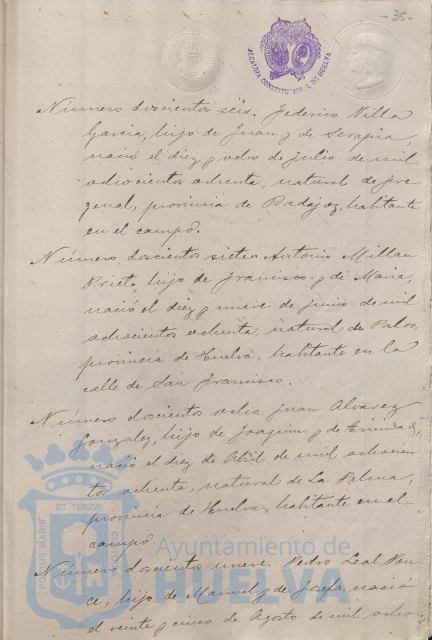 -35-
ALCALDIA CONSTITUCIONAL DE HUELVA
Número doscientos séis. Federico Villa
Garcia, hijo de Juan y de Serapia,
nació el diez y ocho de julio de mil
ochocientos ochenta, natural de Fre
genal, provincia de Badajoz, habitante
en el campo.
Número doscientos siete. Antonio Millan
Prieto, hijo de Francisco y de Maria,
nació el diez y nueve de junio de mil
ochocientos ochenta, natural de Palos,
provincia de Huelva, habitante en la
calle de San Francisco.
Número doscientos ocho Juan Alvarez
Gonzalez, hijo de Joaquin y de
nació el diez de Abril de mil ochocien
tos ochenta, natural de La Palma,
provincia de Huelva, habitante en el
campo.
Número doscientos nueve. Pedro Leal Pon
ce, hijo de Manuel y de Josefa, nació
el veinte y cinco de Agosto de mil ocho
PORTUS MARIS ET TERRAE CUSTODIA
Ayuntamiento de
HUELVA